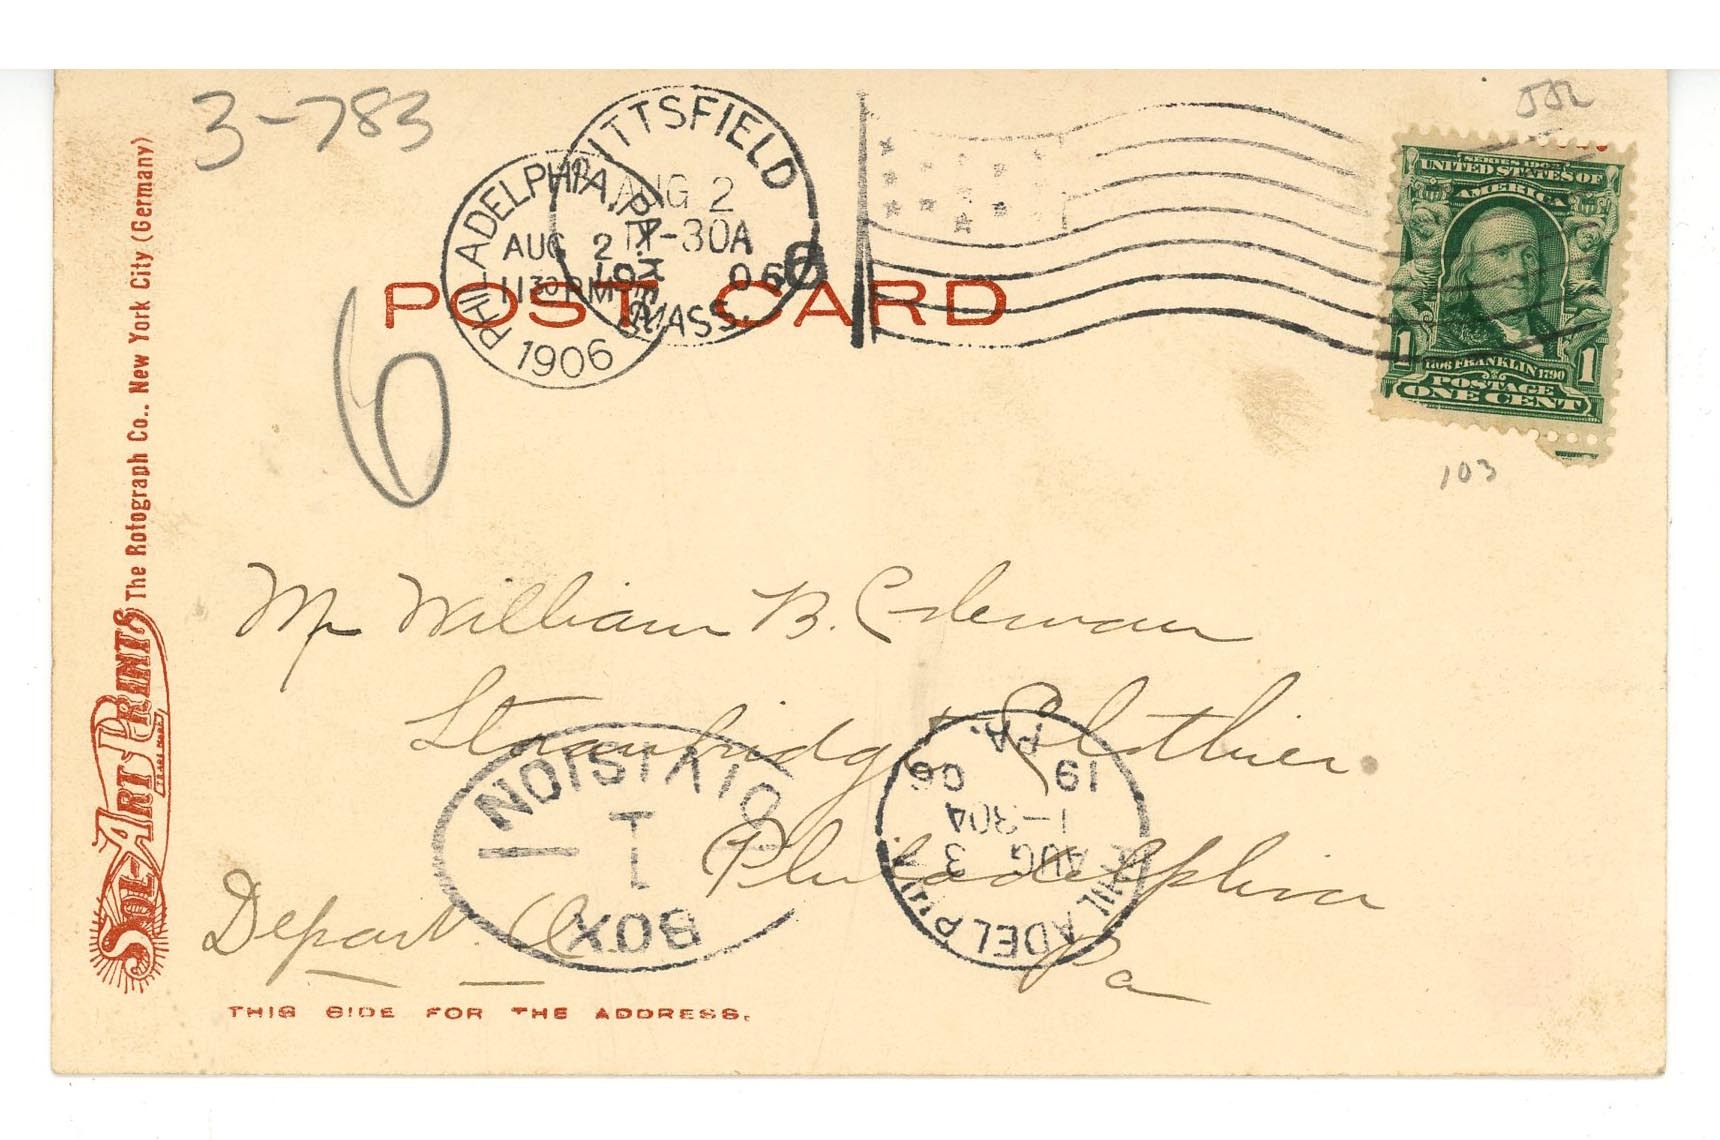 3-783
JJL
PITTSFIELD
AUG 2
11-30A
1906
MASS.
PHILADELPHIA, PA.
AUG 2
1130 PM
1906
6
SERIES 1902
UNITED STATES OF
AMERICA
1706 FRANKLIN 1790
POSTAGE
1 ONE CENT 1
POST CARD
6
103
Mr William B. Coleman
Strawbridge & Clothier
Philadelphia
Pa
Depart.
DIVISION
1
BOX
PHILADELPHIA
PA.
AUG 3
1-30A
19 06
THIS SIDE FOR THE ADDRESS.
SOL-ART PRINTS
TRADE MARK
The Rotograph Co., New York City (Germany)